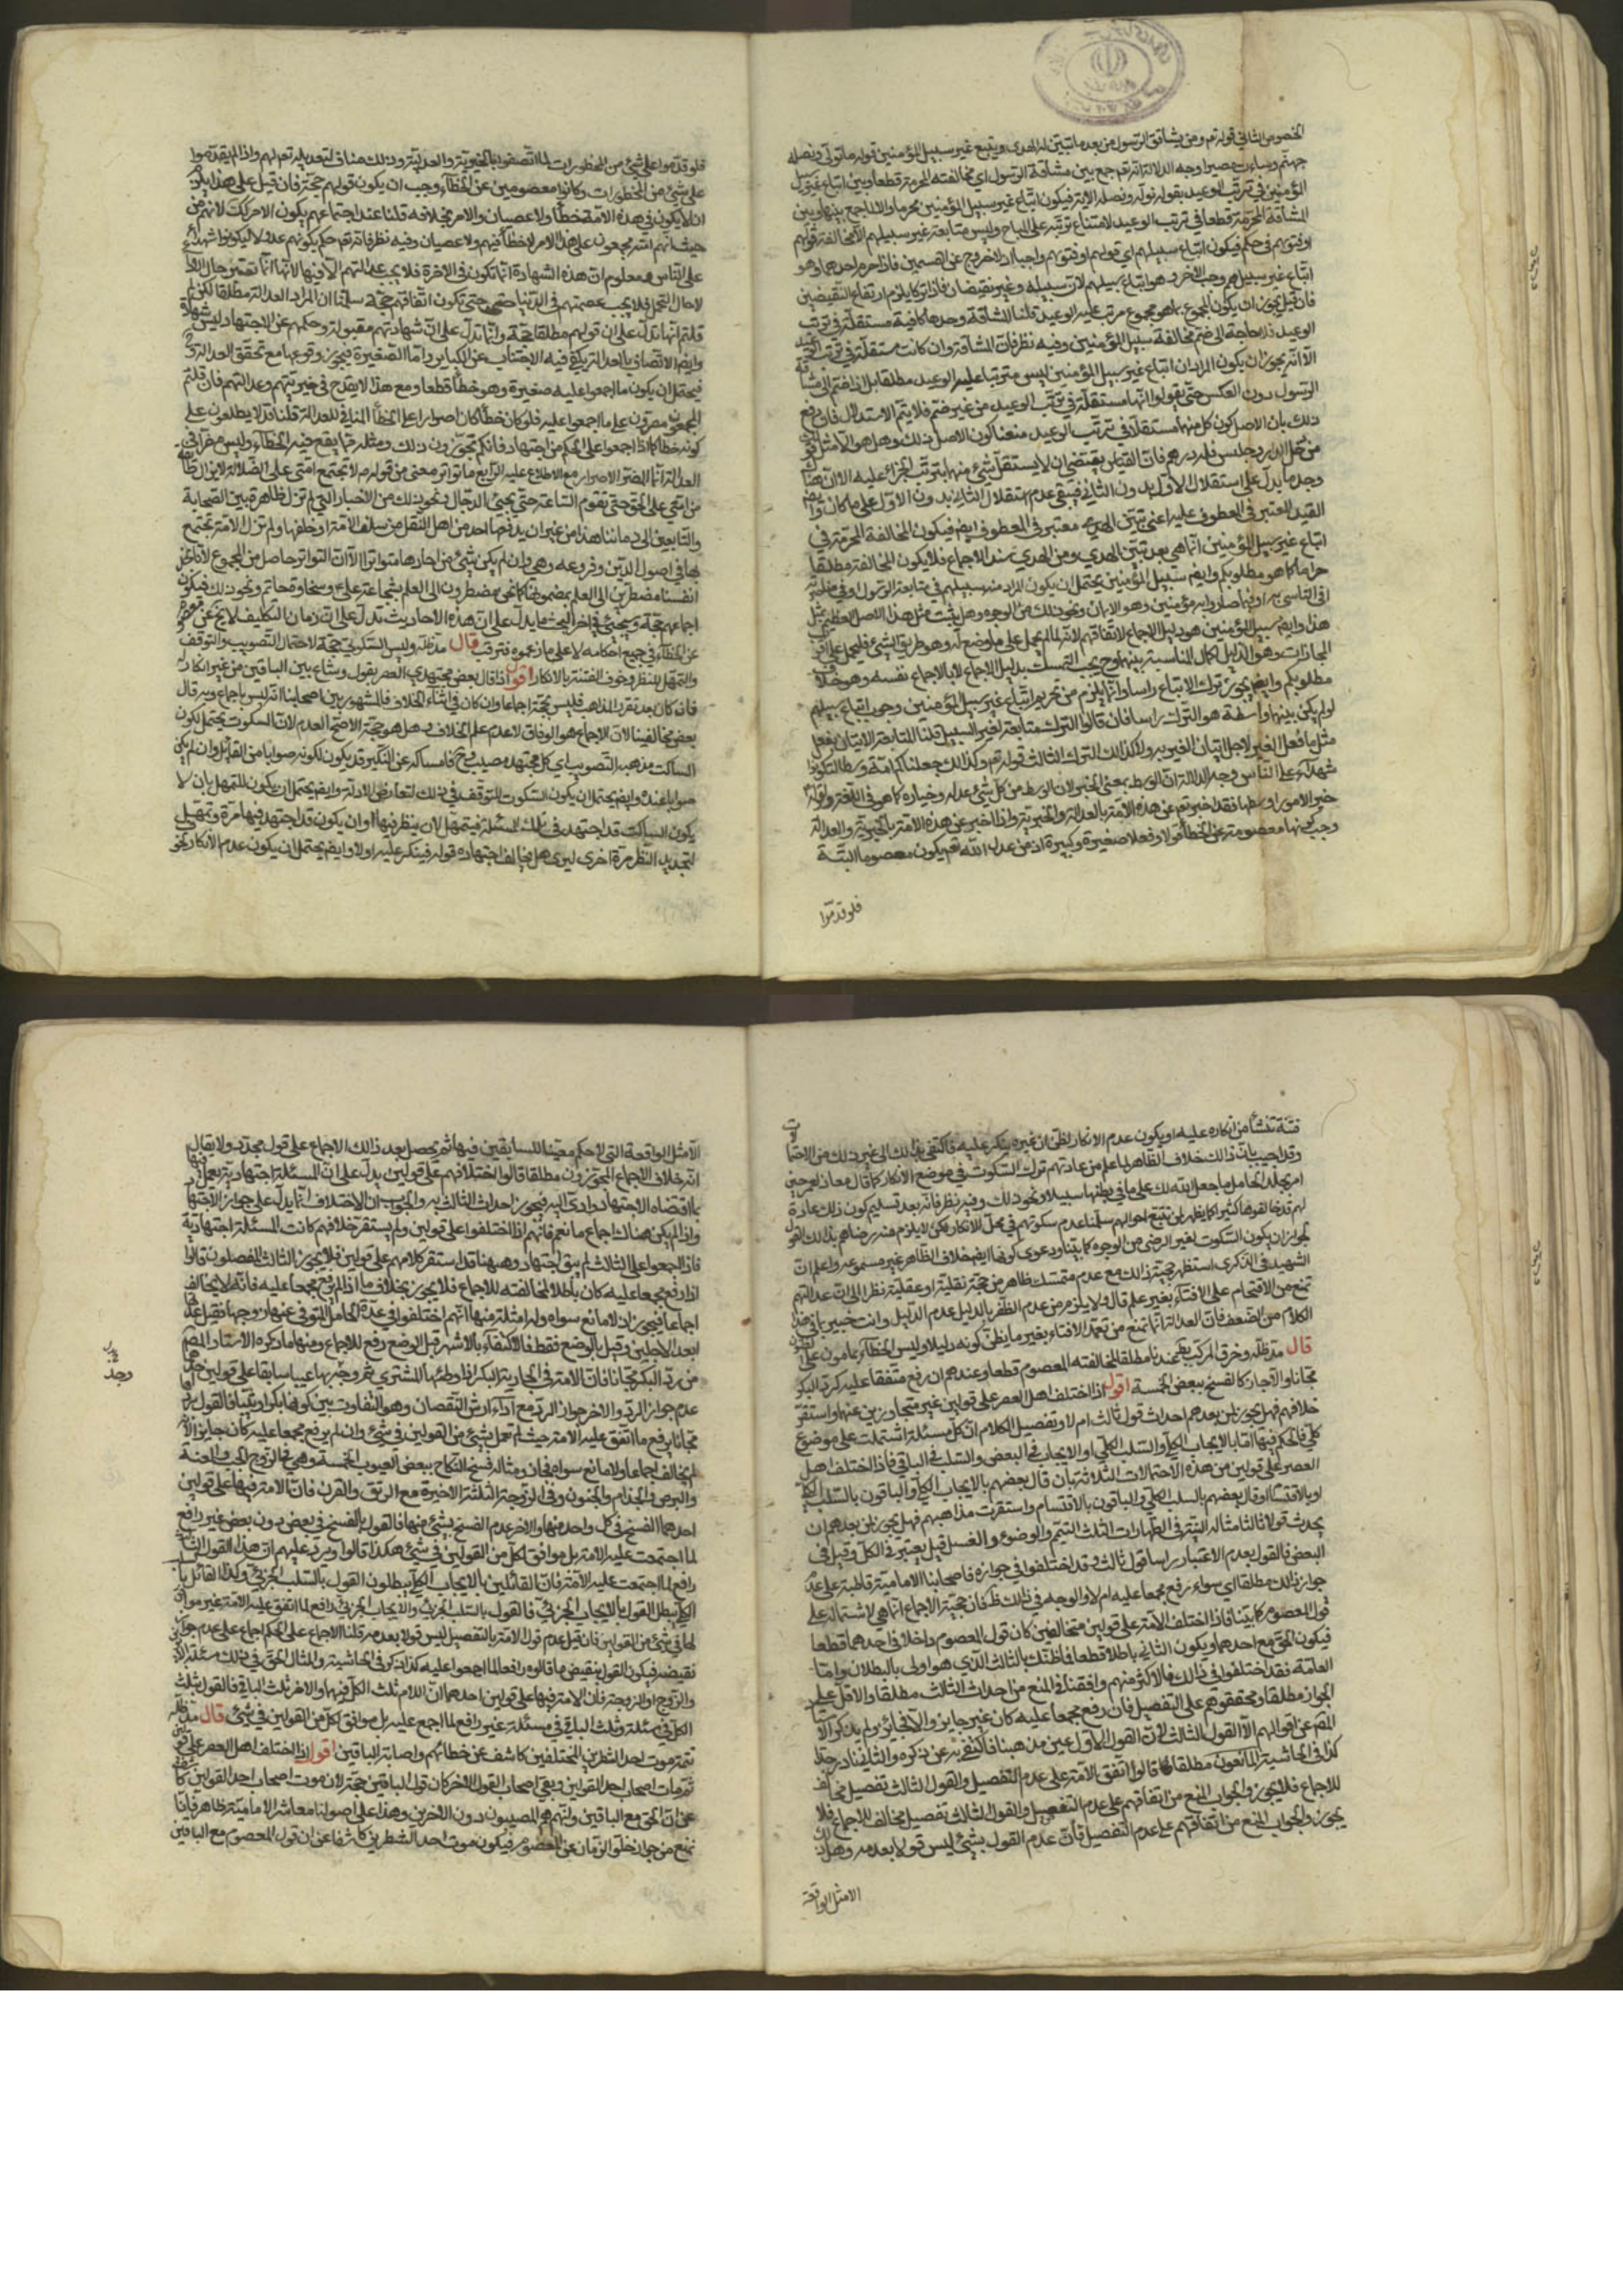 الخصوص الثاني قوله تعم ومن يشاقق الرسول من بعد ما تبين له الهدى ويتبع غير سبيل المؤمنين نوله ما تولى ونصله
جهنم وساءت مصيرا وجه الدلالة انه تعم جمع بين مشاقة الرسول اي مخالفته المحرمة قطعا وبين اتباع غير سبيل
المؤمنين في ترتب الوعيد بقوله نوله ونصله الاية فيكون اتباع غير سبيل المؤمنين محرما والا لما جمع بينها وبين
المشاقة المحرمة قطعا في ترتب الوعيد لامتناع ترتبه على المباح وليس متابعة غير سبيلهم الا مخالفة قولهم
او فتويهم في حكم فيكون اتباع سبيلهم اي قولهم او فتويهم واجبا اذ لا خروج عن القسمين فاذا حرم احدهما وهو
اتباع غير سبيلهم وجب الاخر وهو اتباع سبيلهم لان سبيله وغيره نقيضان فاذا تركا يلزم ارتفاع النقيضين
فان قيل يجوز ان يكون المجموع بما هو مجموع مرتب عليه الوعيد قلنا المشاقة وحدها كافية مستقلة في ترتب
الوعيد فلا حاجة الى ضم مخالفة سبيل المؤمنين وفيه نظر فان المشاقة وان كانت مستقلة في ترتب الوعيد
الا انه يجوز ان يكون المراد ان اتباع غير سبيل المؤمنين ليس مترتبا عليه الوعيد مطلقا بل اذا ضم الى مشاقة
الرسول دون العكس حتى يقولوا انها مستقلة في ترتب الوعيد من غير ضم فلا يتم الاستدلال فان دفع
ذلك بان الاصل كون كل منهما مستقلا في ترتب الوعيد منعنا كون الاصل ذلك وهل هو الا مثل قولك
من دخل الدار وجلس فله درهم فان القياس يقتضي ان لا يستقل شئ منهما بترتب الجزاء عليه الا ان هنا
وجد ما يدل على استقلال الاول بدون الثاني فيبقى عدم استقلال الثاني بدون الاول على ما كان وايضم
القيد المعتبر في المعطوف عليه اعني تبين الهدى معتبر في المعطوف ايضم فيكون المخالفة المحرمة في
اتباع غير سبيل المؤمنين انما هي بعد تبين الهدى ومن الهدى سند الاجماع فلا يكون المخالفة مطلقا
حراما كما هو مطلوبكم وايضم سبيل المؤمنين يحتمل ان يكون المراد منه سبيلهم في متابعة الرسول او في مناصرته
او في التأسي به او فيما صاروا به مؤمنين وهو الايمان ونحو ذلك من الوجوه وهل يثبت مثل هذا الاصل العظيم بمثل
هذا وايضم سبيل المؤمنين هو دليل الاجماع لا اتفاقهم لانه لما لم يحمل على ما وضع له وهو طريق المشي فليحمل على اقرب
المجازات وهو الدليل لكمال المناسبة بينهما وح يجب التمسك بدليل الاجماع لا بالاجماع نفسه وهو خلاف
مطلوبكم وايضم يجوز ترك الاتباع راسا وانما يلزم من تحريم اتباع غير سبيل المؤمنين وجوب اتباع سبيلهم
لو لم يكن بينهما واسطة هو الترك راسا فان قالوا الترك متابعة لغير السبيل قلنا المتابعة الاتيان بفعل
مثل ما فعل الغير لاجل اتيان الغير به ولا كذلك الترك الثالث قوله تعم وكذلك جعلناكم امة وسطا لتكونوا
شهداء على الناس وجه الدلالة ان الوسط بمعنى الخير لان الوسط من كل شئ عدله وخياره كما هو في اللغة ولقوله
خير الامور اوسطها فقد اخبر تعم عن هذه الامة بالعدالة والخيرية واذا اخبر عن هذه الامة بالخيرية والعدالة
وجب كونها معصومة عن الخطأ قولا وفعلا صغيرة وكبيرة اذ من عدل الله تعم يكون معصوما البتة
فلو قدموا
فلو قدموا على شئ من المحظورات لما اتصفوا بالخيرية والعدالة وذلك مناف لتعديله تعم لهم واذا لم يقدموا
على شئ من المحظورات وكانوا معصومين عن الخطاء وجب ان يكون قولهم حجة فان قيل على هذا يلزم
ان لا يكون في هذه الامة خطأ ولا عصيان والامر بخلافه قلنا عند اجتماعهم يكون الامر كك لانهم من
حيث انهم امة مجمعون على هذا الامر لا خطأ فيهم ولا عصيان وفيه نظر فانه تعم حكم بكونهم عدولا ليكونوا شهداء
على الناس ومعلوم ان هذه الشهادة انما تكون في الاخرة فلا يجب عدالتهم الا فيها لانها انما تعتبر حال الاداء
لا حال التحمل فلا يجب عصمتهم في الدنيا حتى تكون اتفاقهم حجة سلمنا ان المراد العدالة مطلقا لكن لم
قلتم انها تدل على ان قولهم مطلقا حجة وانما تدل على ان شهادتهم مقبولة وحكمهم عن الاجتهاد ليس شهادة
وايضم الاتصاف بالعدالة يكفي فيه الاجتناب عن الكباير واما الصغيرة فيجوز وقوعها مع تحقق العدالة
فيحتمل ان يكون ما اجمعوا عليه صغيرة وهو خطأ قطعا ومع هذا لا يقدح في خيريتهم وعدالتهم فان قلتم
المجمعون مصرون على ما اجمعوا عليه فلو كان خطأ كان اصرارا على الخطأ المنافي للعدالة قلنا قد لا يطلعون على
كونه خطأ كما اذا اجمعوا على الحكم من اجتهاد فانكم تجوزون ذلك ومثله مما يقع فيه الخطاء وليس مضرا في
العدالة انما المضر الاصرار مع الاطلاع عليه الرابع ما تواتر معنى من قوله ص لا تجتمع امتي على الضلالة لا يزال طائفة
من امتي على الحق حتى تقوم الساعة حتى يجئ الدجال ونحو ذلك من الاخبار التي لم تزل ظاهرة بين الصحابة
والتابعين الى زماننا هذا من غير ان يدفعها احد من اهل النقل من سلف الامة او خلفها ولم تزل الامة تحتج
بها في اصول الدين وفروعه وهي وان لم يكن شئ من احادها متواترا الا ان التواتر حاصل من المجموع لانا نجد
انفسنا مضطرين الى العلم بمضمونها كما نحن مضطرون الى العلم بشجاعة علي ع وسخاوة حاتم ونحو ذلك فيكون
اجماعهم حجة وسيجئ في اخر البحث ما يدل على ان هذه الاحاديث تدل على ان زمان التكليف لا يخ عن معصوم
عن الخطاء في جميع احكامه لا على ما زعموه فترقب قال مد ظله وليس السكوتي حجة لاحتمال التصويب والتوقف
والتمهل للنظر وخوف الفتنة بالانكار اقول اذا قال بعض مجتهدي العصر بقول وشاع بين الباقين من غير انكار
فان كان بعد تقرر المذاهب فليس حجة اجماعا وان كان في اثناء الخلاف فالمشهور بين اصحابنا انه ليس باجماع وبه قال
بعض مخالفينا لان الاجماع هو الوفاق لا عدم علم الخلاف وهل هو حجة الاصح العدم لان السكوت يحتمل لكون
الساكت مذهبه التصويب اي كل مجتهد مصيب وح فامساكه عن النكير قد يكون لكونه صوابا من القائل وان لم يكن
صوابا عنده وايضم يحتمل ان يكون السكوت للتوقف في ذلك لتعارض الادلة وايضم يحتمل ان يكون للتمهل بان لا
يكون الساكت قد اجتهد في تلك المسئلة فيتمهل لان ينظر فيها او ان يكون قد اجتهد فيها مرة وتمهل
لتجديد النظر مرة اخرى ليرى هل يخالف اجتهاده قوله فينكر عليه او لا وايضم يحتمل ان يكون عدم الانكار لخوف
فتنة تنشأ من انكاره عليه او يكون عدم الانكار لظن ان غيره ينكر عليه فاكتفى بذلك الى غير ذلك من الاحتمالات
وقد اجيب بان ذلك خلاف الظاهر لما علم من عادتهم ترك السكوت في موضع الانكار كما قال معاذ لعمر حين
امر بجلد الحامل ما جعل الله لك على ما في بطنها سبيلا ونحو ذلك وفيه نظر فانه بعد تسليم كون ذلك عادة
لهم قد خالفوها كثيرا كما يظهر لمن تتبع احوالهم سلمنا عدم سكوتهم في محل الانكار لكن لا يلزم منه رضاهم بذلك القول
لجواز ان يكون السكوت لغير الرضى من الوجوه كما بيناه ودعوى كونها ايضم خلاف الظاهر غير مسموعة واعلم ان
الشهيد في الذكرى استظهر حجية ذلك مع عدم متمسك ظاهر من حجة نقلية او عقلية نظرا الى ان عدالتهم
تمنع من الاقتحام على الافتاء بغير علم قال ولا يلزم من عدم الظفر بالدليل عدم الدليل وانت خبير بما في هذا
الكلام من الضعف فان العدالة انما تمنع من تعمد الافتاء بغير ما يظن كونه دليلا وليس الخطاء بمأمون على الظنون
قال مد ظله وخرق المركب بط عندنا مطلقا لمخالفته المعصوم قطعا وعندهم ان رفع متفقا عليه كرد البكر
مجانا والا جاز كالفسخ ببعض الخمسة اقول اذا اختلف اهل العصر على قولين غير متجاوزين عنهما واستقر
خلافهم فهل يجوز لمن بعدهم احداث قول ثالث ام لا وتفصيل الكلام ان كل مسئلة اشتملت على موضوع
كلي فالحكم فيها اما بالايجاب الكلي او السلب الكلي او الايجاب في البعض والسلب في الباقي فاذا اختلف اهل
العصر على قولين من هذه الاحتمالات الثلاثة بان قال بعضهم بالايجاب الكلي والباقون بالسلب الكلي
او بالاقتسام او قال بعضهم بالسلب الكلي والباقون بالاقتسام واستقرت مذاهبهم فهل يجوز لمن بعدهم ان
يحدث قولا ثالثا مثاله النية في الطهارات الثلث التيمم والوضوء والغسل قيل يعتبر في الكل وقيل في
البعض فالقول بعدم الاعتبار راسا قول ثالث وقد اختلفوا في جوازه فاصحابنا الامامية قاطبة على عدم
جواز ذلك مطلقا اي سواء رفع مجمعا عليه ام لا والوجه في ذلك ظ فان حجية الاجماع انما هي لاشتماله على
قول المعصوم كما بينا فاذا اختلف الامة على قولين متخالفين كان قول المعصوم داخلا في احدهما قطعا
فيكون الحق مع احدهما ويكون الثاني باطلا قطعا فما ظنك بالثالث الذي هو اولى بالبطلان واما
العامة فقد اختلفوا في ذلك فالاكثر منهم وافقنا في المنع من احداث الثالث مطلقا والاقل على
الجواز مطلقا ومحققوهم على التفصيل فان رفع مجمعا عليه كان غير جايز والا فجائز ولم يذكر
المص عن اقوالهم الا القول الثالث لان القول الاول عين مذهبنا فاكتفى به عن ذكره والثاني نادر جدا
كذا في الحاشية المانعون مطلقا قالوا اتفق الامة على عدم التفصيل والقول الثالث تفصيل مخالف
للاجماع فلا يجوز والجواب المنع من اتفاقهم على عدم التفصيل والقول الثالث تفصيل مخالف للاجماع فلا
يجوز والجواب المنع من اتفاقهم على عدم التفصيل فان عدم القول بشئ ليس قولا بعدمه وهل ذلك
الا مثل الواقعة
الا مثل الواقعة التي لا حكم معينا للسابقين فيها ثم يحصل بعد ذلك الاجماع على قول مجدد ولا يقال
انه خلاف الاجماع المجوزون مطلقا قالوا اختلافهم على قولين يدل على ان المسئلة اجتهادية يعمل فيها
بما اقتضاه الاجتهاد وادى اليه فيجوز احداث الثالث به والجواب ان الاختلاف انما يدل على جواز الاجتهاد
واذا لم يكن هناك اجماع مانع فانهم اذا اختلفوا على قولين ولم يستقر خلافهم كانت المسئلة اجتهادية
فاذا اجمعوا على الثالث لم يبق اجتهاد وههنا قد استقر كلامهم على قولين فلا يجوز الثالث المفصلون قالوا
اذا رفع مجمعا عليه كان باطلا لمخالفته للاجماع فلا يجوز بخلاف ما اذا لم يرفع مجمعا عليه فانه لا يخالف
اجماعا فيجوز اذ لا مانع سواه وله امثلة منها انهم اختلفوا في عدة الحامل المتوفى عنها زوجها فقيل عدتها
ابعد الاجلين وقيل بالوضع فقط فالاكتفاء بالاشهر قبل الوضع رفع للاجماع ومنها ما ذكره الاستاد المص
من رد البكر مجانا فان الامة في الجارية البكر اذا وطئها المشتري ثم وجد بها عيبا سابقا على قولين احدهما
عدم جواز الرد والاخر جواز الرد مع اداء ارش النقصان وهو التفاوت بين كونها بكرا وثيبا فالقول بردها
مجانا يرفع ما اتفق عليه الامة حيث لم تعمل بشئ من القولين في شئ وان لم يرفع مجمعا عليه كان جايزا لانه
لم يخالف اجماعا ولا مانع سواه فجاز ومثاله فسخ النكاح ببعض العيوب الخمسة وهي في الزوج الجب والعنة
والبرص والجذام والجنون وفي الزوجة الثلثة الاخيرة مع الرتق والقرن فان الامة فيها على قولين
احدهما الفسخ في كل واحد منها والاخر عدم الفسخ بشئ منها فالقول بالفسخ في بعض دون بعض غير رافع
لما اجتمعت عليه الامة بل موافق لكل من القولين في شئ هكذا قالوا ويرد عليهم ان هذا القول الثالث
رافع لما اجتمعت عليه الامة فان القائلين بالايجاب الكلي يبطلون القول بالسلب الجزئي وكذا القائل بالسلب
الكلي يبطل القول بالايجاب الجزئي فالقول بالسلب الجزئي والايجاب الجزئي رافع لما اتفق عليه الامة غير موافق
لها في شئ من القولين فان قيل عدم قول الامة بالتفصيل ليس قولا بعدمه قلنا الاجماع على الحكم اجماع على عدم جواز
نقيضه فيكون القول بنقيض ما قالوه رافعا لما اجمعوا عليه كذا ذكر في الحاشية والمثال الحق في ذلك مسئلة الابوين
والزوج او الزوجة فان الامة فيها على قولين احدهما ان للام ثلث الكل فيهما والاخر ثلث الباقي فالقول بثلث
الكل في مسئلة وثلث الباقي في مسئلة غير رافع لما اجمع عليه بل موافق لكل من القولين في شئ قال مد ظله
تتمة موت احد الشطرين المختلفين كاشف عن خطائهم واصابة الباقين اقول اذا اختلف اهل العصر على قولين
ثم مات اصحاب احد القولين وبقي اصحاب القول الاخر كان قول الباقين حجة لان موت اصحاب احد القولين كاشف
عن ان الحق مع الباقين وانهم هم المصيبون دون الاخرين وهذا على اصولنا معاشر الامامية ظاهر فانا
نمنع من جواز خلو الزمان عن المعصوم فيكون موت احد الشطرين كاشفا عن ان قول المعصوم مع الباقين